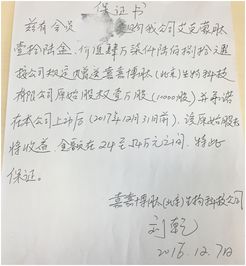 保证书
兹有会员 购我公司艾克蒙肽
壹拾陆盒,价值肆万柒仟陆佰捌拾元
按公司规定 喜喜博肽(北京)生物科技
有限公司原始股权壹万股(10000股)并承诺
在本公司上市后(2017年12月31日前),该原始股权
将收益,金额在24至 万元之间,特此
保证。
喜喜博肽(北京)生物科技公司
刘乾
2016.12.7日